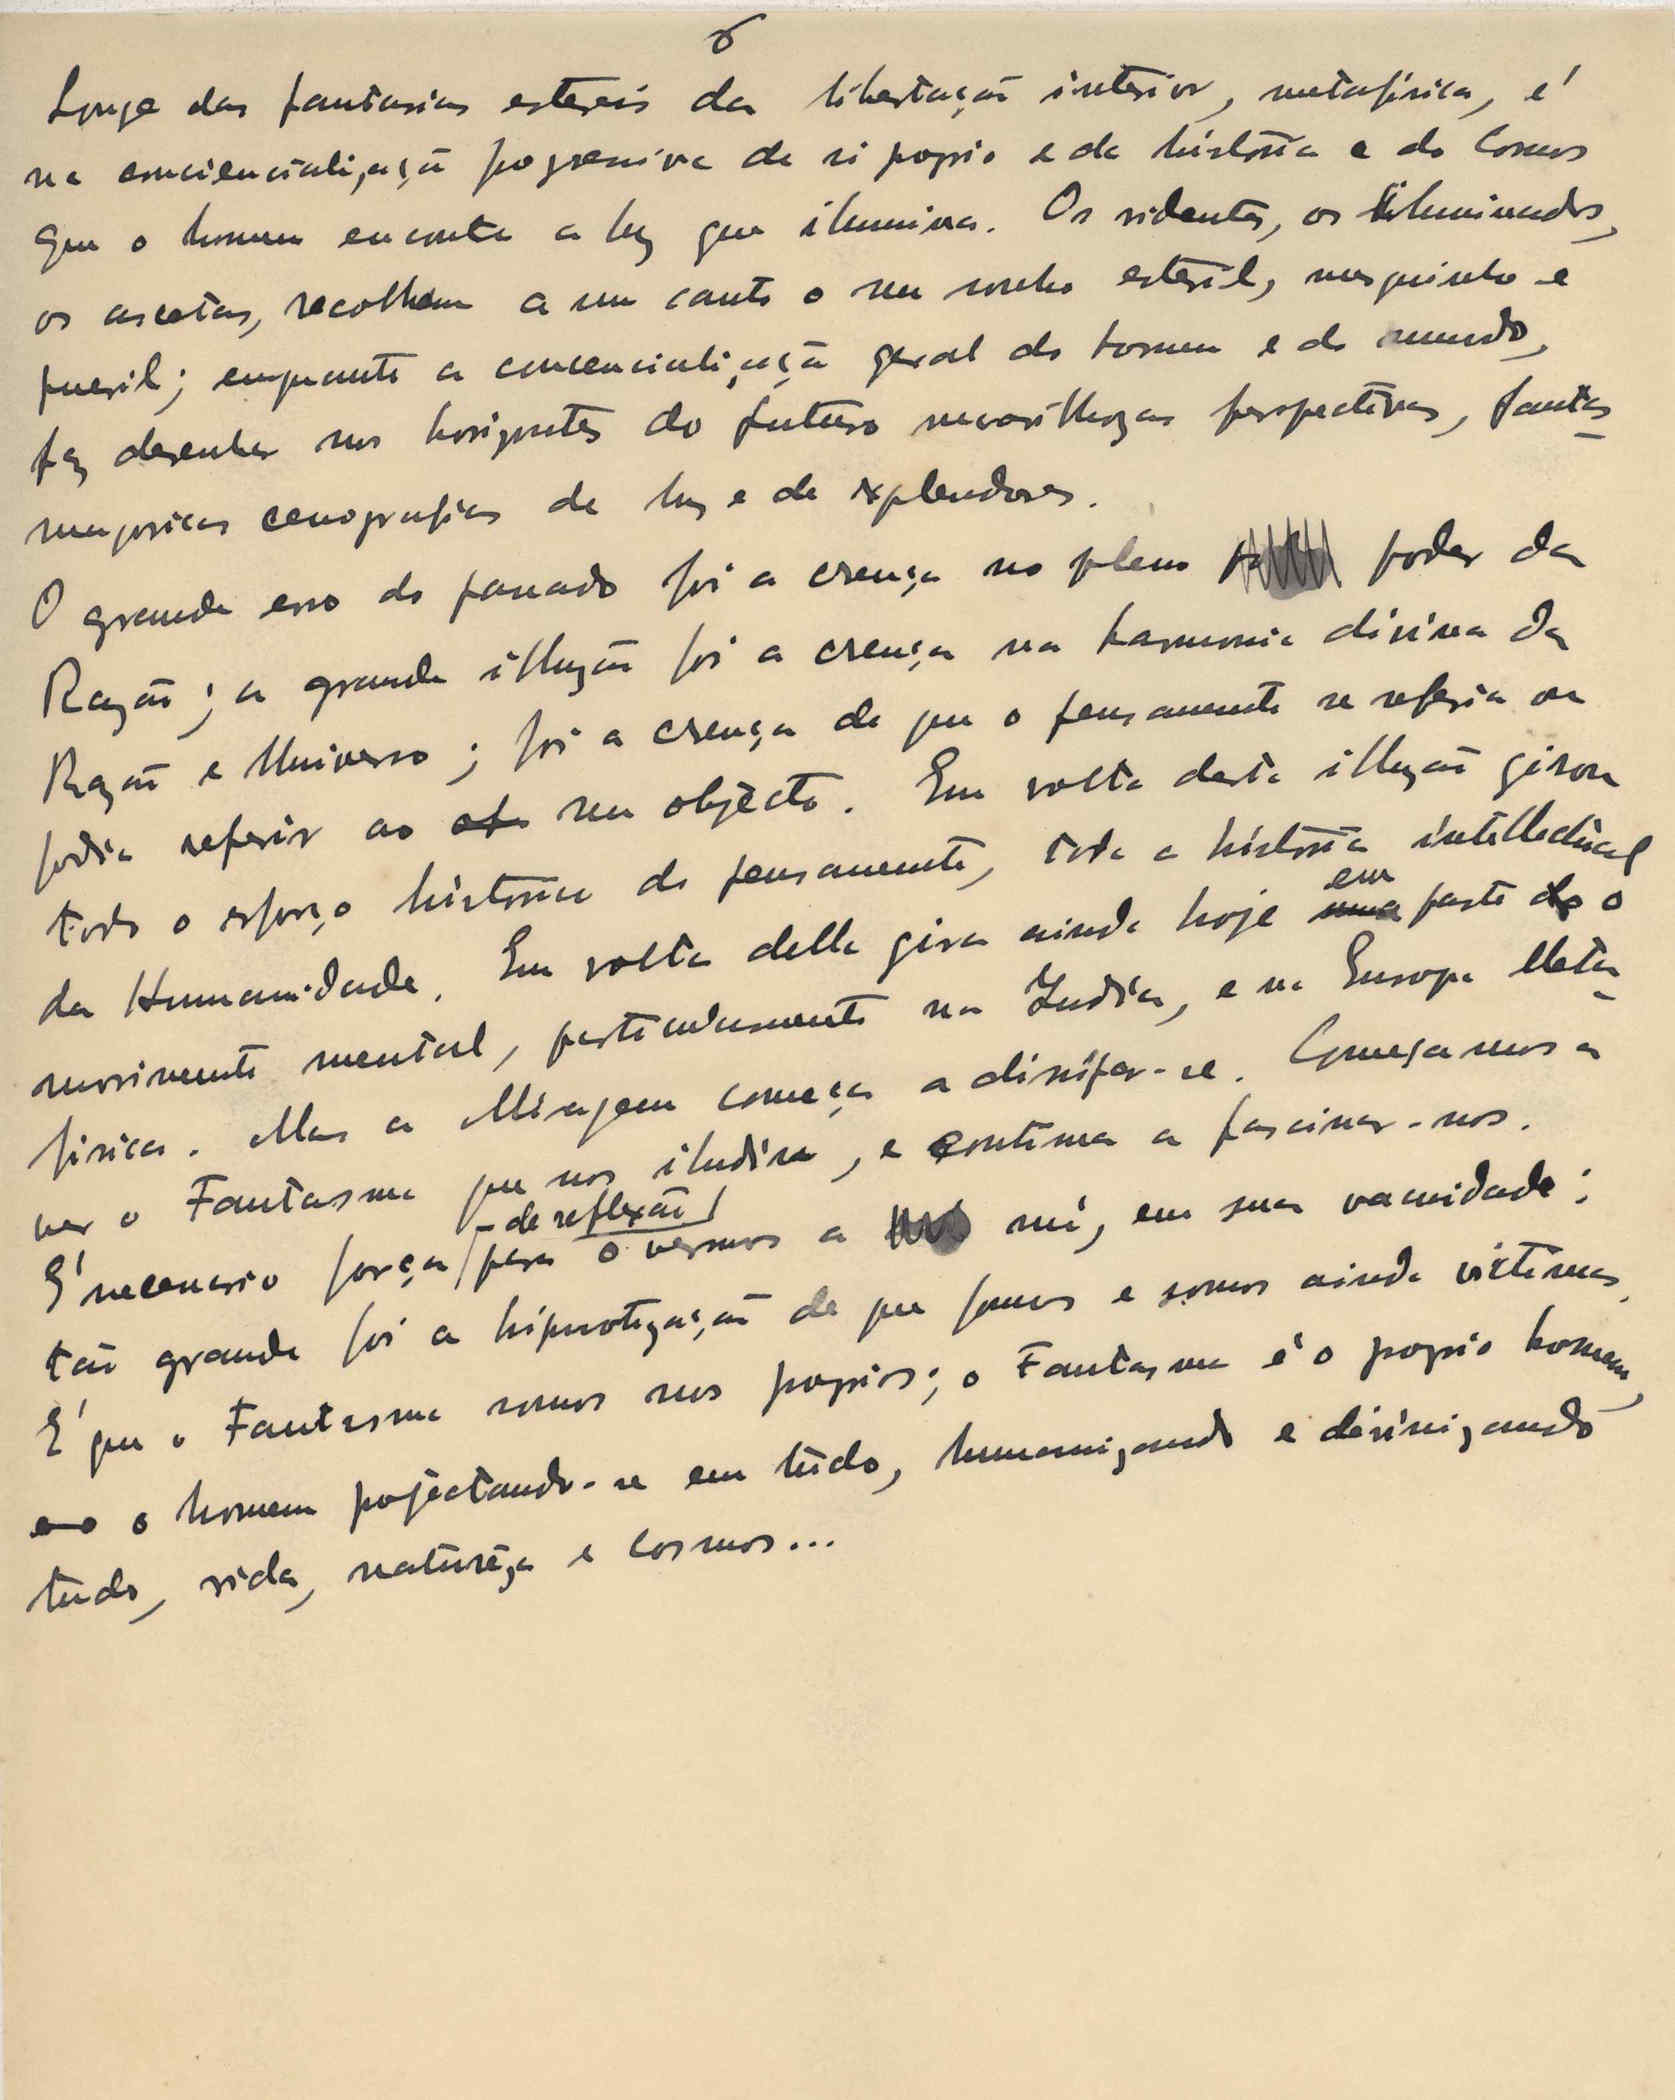 6
Longe das fantasias estereis da libertação interior, metafisica, é
na consciencialização progressiva de si proprio e da historia e do Cosmos
que o homem encontra a luz que ilumina. Os videntes, os illuminados,
os ascetas, recolhem a um canto o seu sonho esteril, mesquinho e
pueril; emquanto a consciencialização geral do homem e do mundo,
faz desenhar nos horizontes do futuro maravilhozas perspectivas, fantas-
magoricas cenografias de luz e de explendores.
O grande erro do passado foi a crença no pleno poder da
Razão; a grande illuzão foi a crença na harmonia divina da
Razão e Universo; foi a crença de que o pensamento se referia ou
podia referir ao seu objécto. Em volta desta illuzão girou
todo o esforço historico do pensamento, toda a historia intellectual
da Humanidade. Em volta della gira ainda hoje em parte o
movimento mental, particularmente na India, e na Europa Meta-
fisica. Mas a Miragem começa a dissipar-se. Começamos a
ver o Fantasma que nos iludira, e continua a fascinar-nos.
É necessario força de reflexão para o vermos a nú, em sua vacuidade;
tão grande foi a hipnotização de que fomos e somos ainda victimas.
É que o Fantasma somos nos proprios; o Fantasma é o proprio homem,
o homem projéctando-se em tudo, humanizando e divinizando
tudo, vida, naturêza e Cosmos...